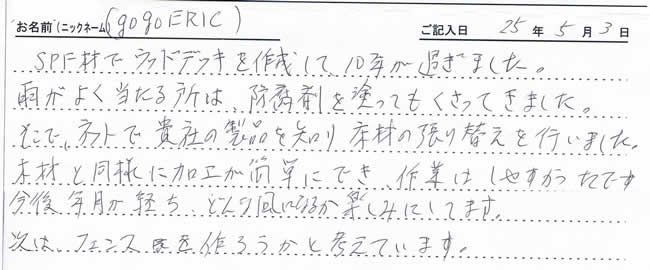 お名前(ニックネーム)(gogoERIC) ご記入日 25年5月3日
SPF材でウッドデッキを作成して、10年が過ぎました。
雨がよく当たる所は、防腐剤を塗ってもくさってきました。
そこで、ネットで貴社の製品を知り床材の張り替えを行いました。
木材と同様に加工が簡単にでき、作業はしやすかったです
今後年月が経ち、どんな風になるか楽しみにしてます。
次は、フェンスを作ろうかと考えています。